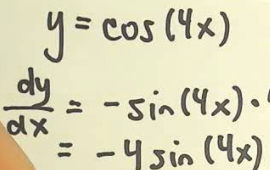 y = cos(4x)
dy/dx = -sin(4x) ·
= -4 sin(4x)